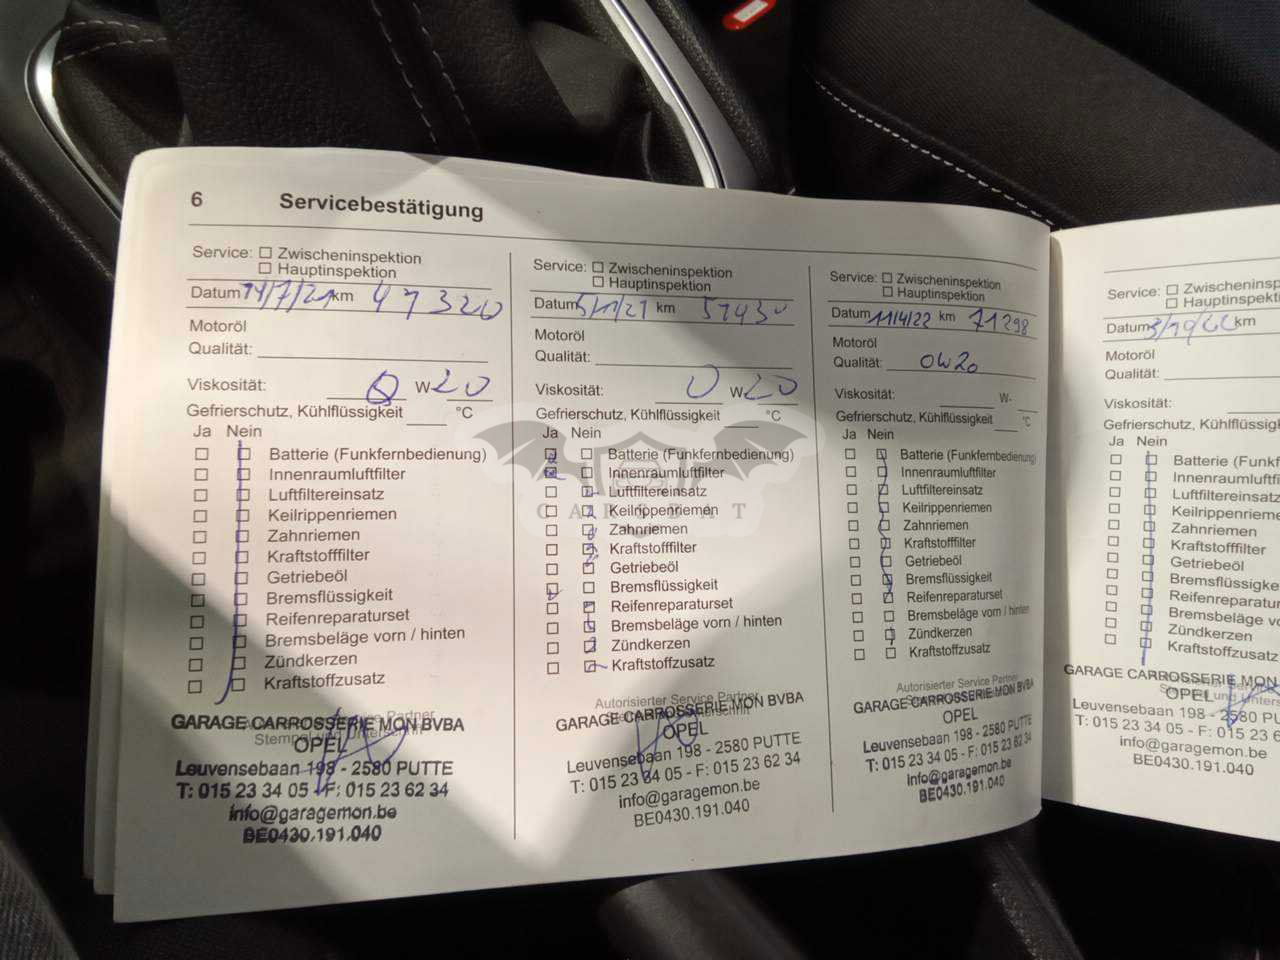 6 Servicebestätigung
Service: Zwischeninspektion
Hauptinspektion
Datum 14/7/21 km 47320
Motoröl
Qualität:
Viskosität: 0 W 20
Gefrierschutz, Kühlflüssigkeit °C
Ja Nein
Batterie (Funkfernbedienung)
Innenraumluftfilter
Luftfiltereinsatz
Keilrippenriemen
Zahnriemen
Kraftstofffilter
Getriebeöl
Bremsflüssigkeit
Reifenreparaturset
Bremsbeläge vorn / hinten
Zündkerzen
Kraftstoffzusatz
Stempel und Unterschrift
GARAGE CARROSSERIE MON BVBA
OPEL
Leuvensebaan 198 - 2580 PUTTE
T: 015 23 34 05 - F: 015 23 62 34
info@garagemon.be
BE0430.191.040
Service: Zwischeninspektion
Hauptinspektion
Datum 5/11/21 km 57430
Motoröl
Qualität:
Viskosität: 0 W 20
Gefrierschutz, Kühlflüssigkeit °C
Ja Nein
Batterie (Funkfernbedienung)
Innenraumluftfilter
Luftfiltereinsatz
Keilrippenriemen
Zahnriemen
Kraftstofffilter
Getriebeöl
Bremsflüssigkeit
Reifenreparaturset
Bremsbeläge vorn / hinten
Zündkerzen
Kraftstoffzusatz
Autorisierter Service Partner
GARAGE CARROSSERIE MON BVBA
OPEL
Leuvensebaan 198 - 2580 PUTTE
T: 015 23 34 05 - F: 015 23 62 34
info@garagemon.be
BE0430.191.040
Service: Zwischeninspektion
Hauptinspektion
Datum 11/4/22 km 71298
Motoröl
Qualität: 0W20
Viskosität: W-
Gefrierschutz, Kühlflüssigkeit °C
Ja Nein
Batterie (Funkfernbedienung)
Innenraumluftfilter
Luftfiltereinsatz
Keilrippenriemen
Zahnriemen
Kraftstofffilter
Getriebeöl
Bremsflüssigkeit
Reifenreparaturset
Bremsbeläge vorn / hinten
Zündkerzen
Kraftstoffzusatz
Autorisierter Service Partner
GARAGE CARROSSERIE MON BVBA
OPEL
Leuvensebaan 198 - 2580 PUTTE
T: 015 23 34 05 - F: 015 23 62 34
info@garagemon.be
BE0430.191.040
Service: Zwischeninspekti
Hauptinspekti
Datum km
Motoröl
Qualität:
Viskosität:
Gefrierschutz, Kühlflüssigk
Ja Nein
Batterie (Funkf
Innenraumluftf
Luftfiltereinsatz
Keilrippenrieme
Zahnriemen
Kraftstofffilter
Getriebeöl
Bremsflüssigke
Reifenreparatur
Bremsbeläge vo
Zündkerzen
Kraftstoffzusatz
GARAGE CARROSSERIE MON
OPEL
Leuvensebaan 198 - 2580 PU
T: 015 23 34 05 - F: 015 23 6
info@garagemon.be
BE0430.191.040